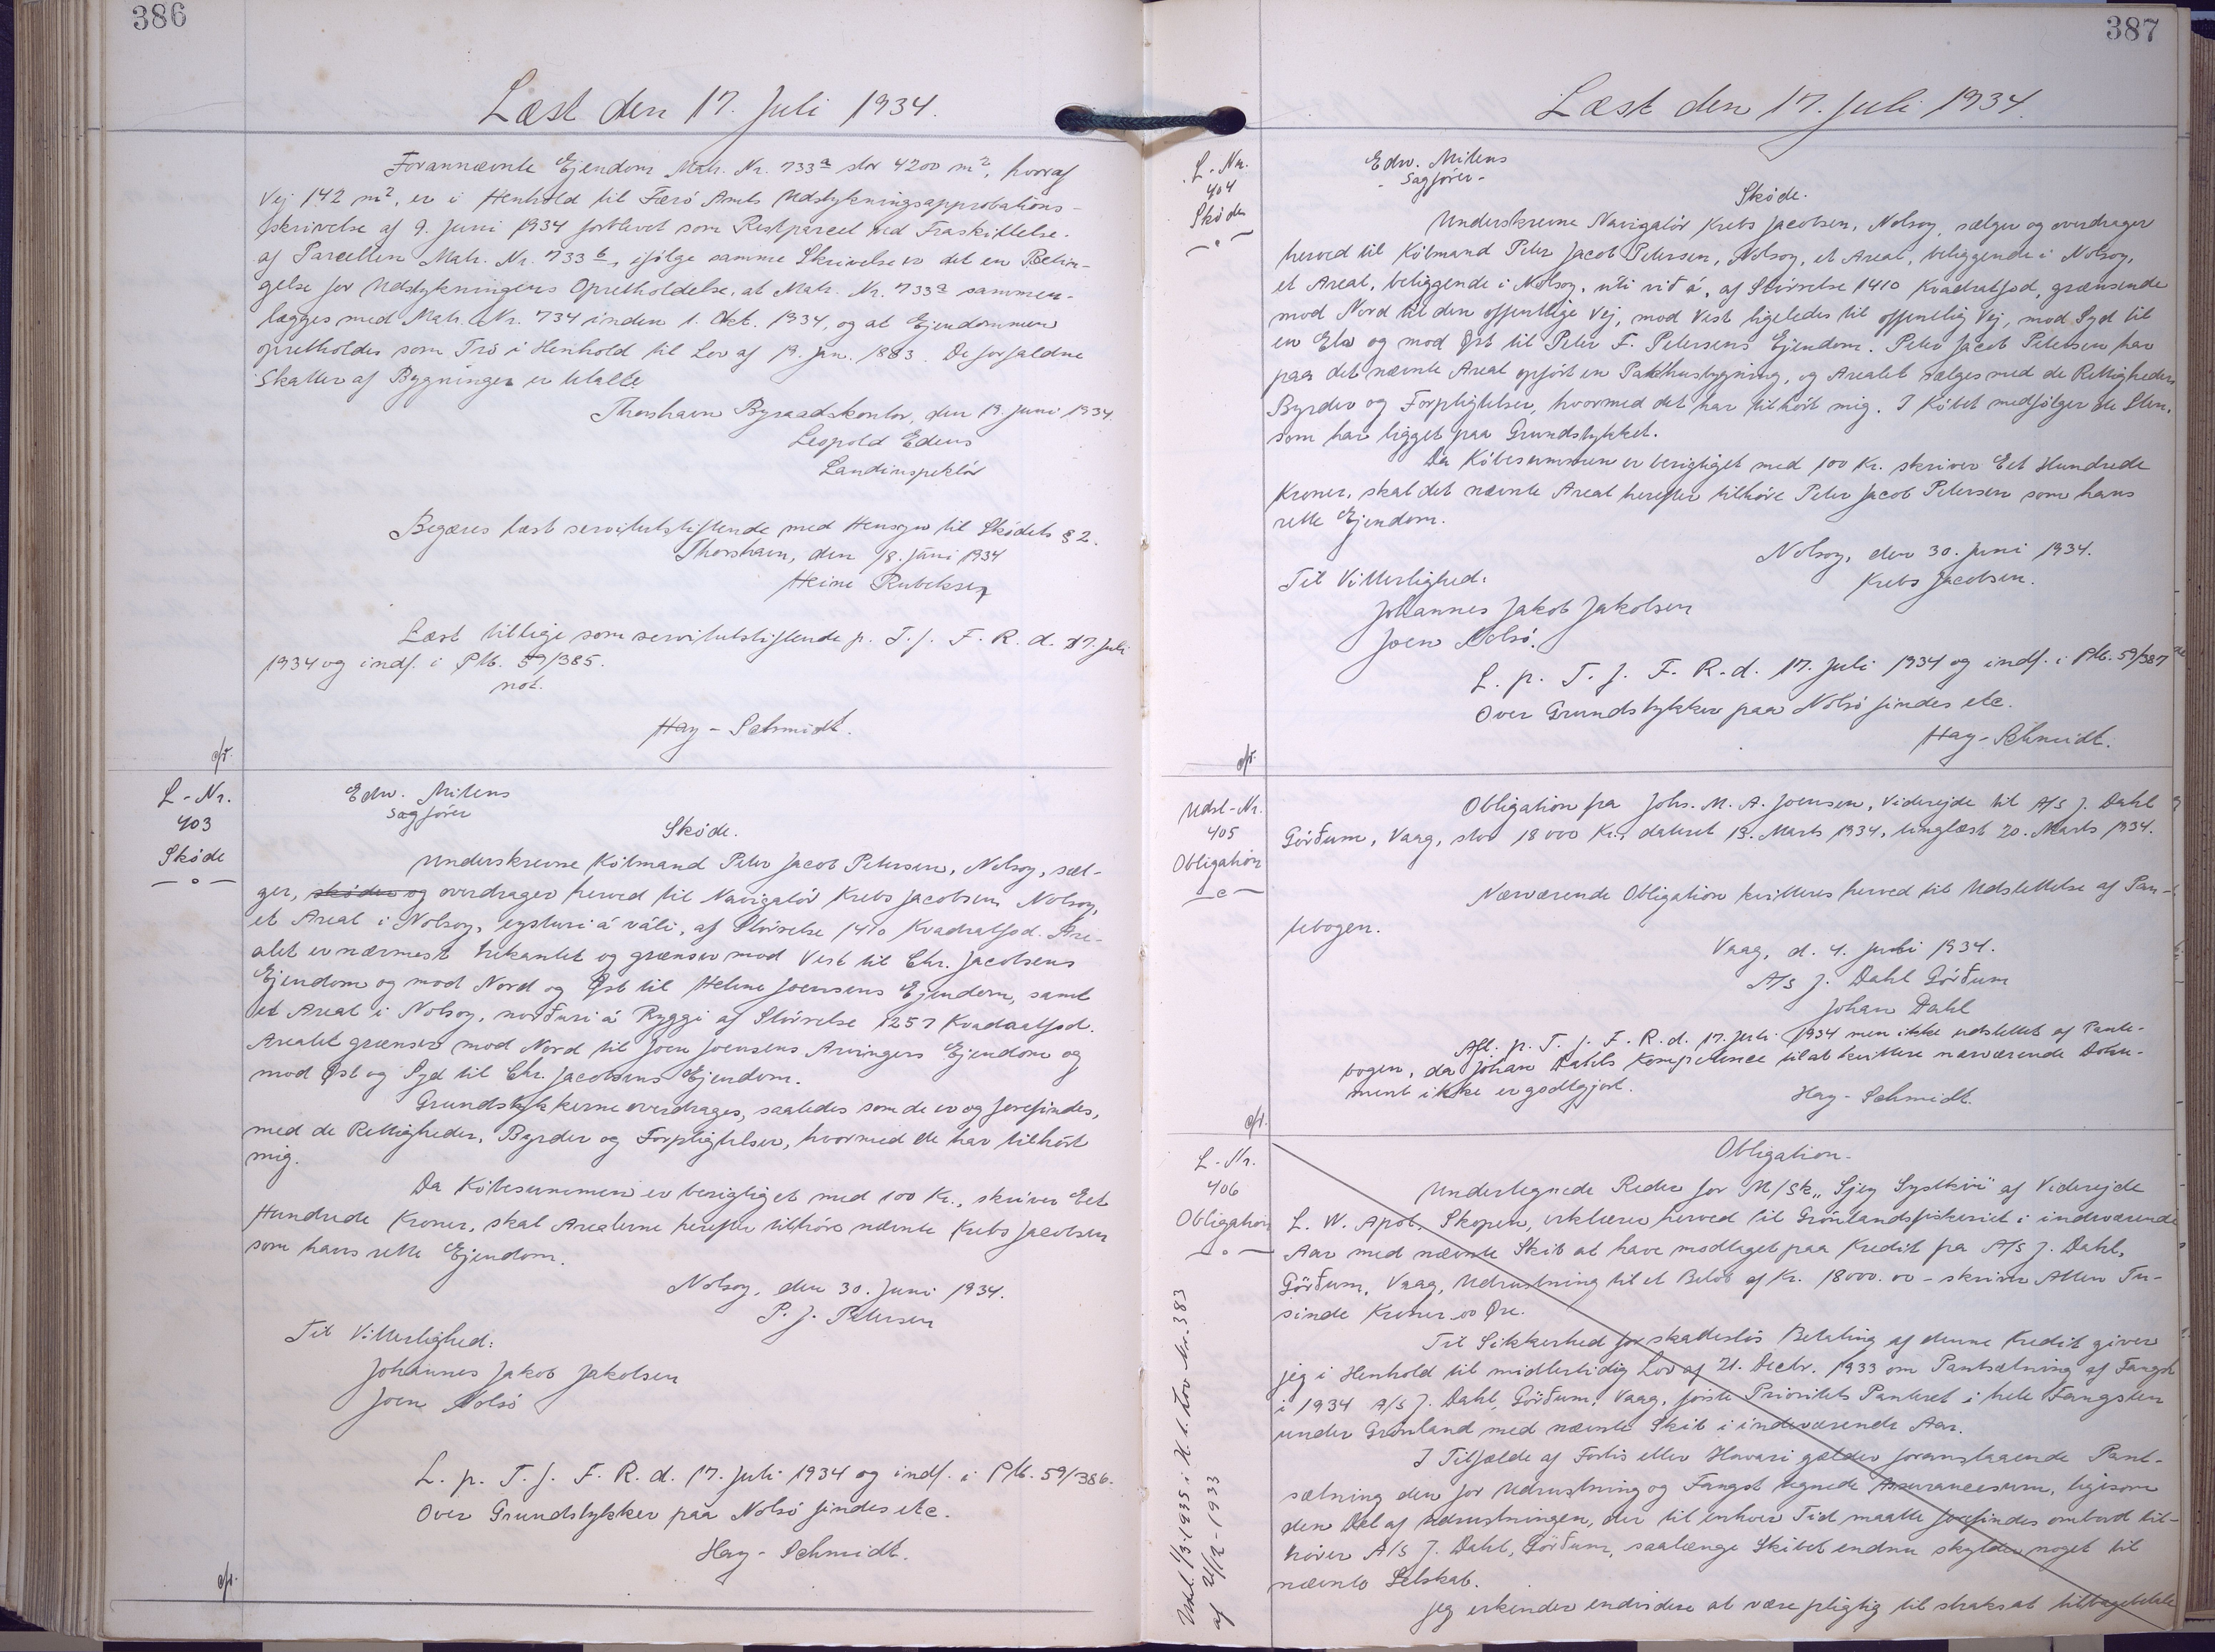 386
Læst den 17. Juli 1934.
Forannævnte Ejendom Matr. Nr. 733a stor 4200 m2, hvoraf
Vej 142 m2, er i Henhold til Færö Amts Udstykningsapprobations-
skrivelse af 9. Juni 1934 forblevet som Restparcel ved Fraskillelse
af Parcellen Matr. Nr. 733b, ifölge samme Skrivelse er det en Betin-
gelse for Udstykningens Opretholdelse, at Matr. Nr. 733a sammen-
lægges med Matr. Nr. 734 inden 1. Okt. 1934, og at Ejendommen
opretholdes som Trö i Henhold til Lov af 13. Jan. 1883. De forfaldne
Skatter af Bygningen er betalte
Thorshavn Byraadskontor, den 13. Juni 1934.
Leopold Edens
Landinspektör
Begæres læst servitutstiftende med Hensyn til Sködets § 2.
Thorshavn, den 18. juni 1934
Heine Rubeksen
Læst tillige som servitutstiftende p. T. f. F. R. d. 17. Juli
1934 og indf. i Ptb. 59/385.
not.
Hay-Schmidt.
L-Nr.
403
Sköde
Edw. Mitens
Sagförer
Sköde.
Underskrevne Köbmand Peter Jacob Petersen, Nolsoy, sæl-
ger, sköder og overdrager herved til Navigatör Krebs Jacobsen Nolsoy,
et Areal i Nolsoy, eysturi á váli, af Störrelse 1410 Kvadratfod. Are-
alet er nærmest trekantet og grænser mod Vest til Chr. Jacobsens
Ejendom og mod Nord og Öst til Helene Joensens Ejendom, samt
et Areal i Nolsoy, norðuri á Ryggi af Störrelse 1257 Kvadratfod.
Arealet grænser mod Nord til Joen Joensens Arvingers Ejendom og
mod Öst og Syd til Chr. Jacobsens Ejendom.
Grundstykkerne overdrages, saaledes som de er og forefindes,
med de Rettigheder, Byrder og Forpligtelser, hvormed de har tilhört
mig.
Da Köbesummen er berigtiget med 100 Kr., skriver Eet
Hundrede Kroner, skal Arealerne herefter tilhöre nævnte Krebs Jacobsen
som hans rette Ejendom.
Nolsoy, den 30. Juni 1934.
P. J. Petersen
Til Vitterlighed:
Johannes Jakob Jakobsen
Joen Nolsö
L. p. T. f. F. R. d. 17. Juli 1934 og indf. i Ptb. 59/386.
Over Grundstykker paa Nolsö findes etc.
Hay-Schmidt.
387
Læst den 17. Juli 1934.
L-Nr.
404
Sköde
Edw. Mitens
- Sagförer -
Sköde.
Underskrevne Navigatör Krebs Jacobsen, Nolsoy, sælger og overdrager
herved til Köbmand Peter Jacob Petersen, Nolsoy, et Areal, beliggende i Nolsoy,
et Areal, beliggende i Nolsoy, úti við á, af Störrelse 1410 Kvadratfod, grænsende
mod Nord til den offentlige Vej, mod Vest ligeledes til offentlig Vej, mod Syd til
en Elv og mod Öst til Peter F. Petersens Ejendom. Peter Jacob Petersen har
paa det nævnte Areal opfört en Pakhusbygning, og Arealet sælges med de Rettigheder,
Byrder og Forpligtelser, hvormed det har tilhört mig. I Köbet medfölger de Sten,
som har ligget paa Grundstykket.
Da Köbesummen er berigtiget med 100 Kr. skriver Eet Hundrede
Kroner, skal det nævnte Areal herefter tilhöre Peter Jacob Petersen som hans
rette Ejendom.
Nolsoy, den 30. Juni 1934.
Krebs Jacobsen.
Til Vitterlighed:
Johannes Jakob Jakobsen
Joen Nolsö.
L. p. T. f. F. R. d. 17. Juli 1934 og indf. i Ptb. 59/387
Over Grundstykker paa Nolsö findes etc.
Hay-Schmidt.
Udsl-Nr.
405
Obligation
Obligation fra Johs. M. A. Joensen, Viderejde til A/S J. Dahl
Görðum, Vaag, stor 18000 Kr., dateret 13. Marts 1934, tinglæst 20. Marts 1934.
Nærværende Obligation kvitteres herved til Udslettelse af Pan-
tebogen.
Vaag, d. 4. Juli 1934.
A/S J. Dahl Görðum
Johan Dahl
Afl. p. T. f. F. R. d. 17. Juli 1934 men ikke udslettet af Pante-
bogen, da Johan Dahls Kompetence til at kvittere nærværende Doku-
ment ikke er godtgjort.
Hay-Schmidt.
L-Nr.
406
Obligation
Udsl. 1/3.1935 i H. t. Lov Nr. 383
af 21/12-1933
Obligation.
Undertegnede Reder for M/Sk "Sjey Systkin" af Viderejde
L. W. Apol, Skopen, erklærer herved til Grönlandsfiskeriet i indeværende
Aar med nævnte Skib at have modtaget paa Kredit fra A/S J. Dahl,
Görðum, Vaag, Udrustning til et Belöb af Kr. 18000.00 - skriver Atten Tu-
sinde Kroner 00 Öre.
Til Sikkerhed for skadeslös Betaling af denne Kredit giver
jeg i Henhold til midlertidig Lov af 21. Decbr. 1933 om Pantsætning af Fangst
i 1934 A/S J. Dahl, Görðum, Vaag, förste Prioritets Panteret i hele Fangsten
under Grönland med nævnte Skib i indeværende Aar.
I Tilfælde af Forlis eller Havari gælder foranstaaende Pant-
sætning den for Udrustning og Fangst tegnede Assurancesum, ligesom
den Del af Udrustningen, der til enhver Tid maatte forefindes ombord til-
hörer A/S J. Dahl, Görðum, saalænge Skibet endnu skylder noget til
nævnte Selskab.
Jeg erkender endvidere at være pligtig til straks at tilbagebetale